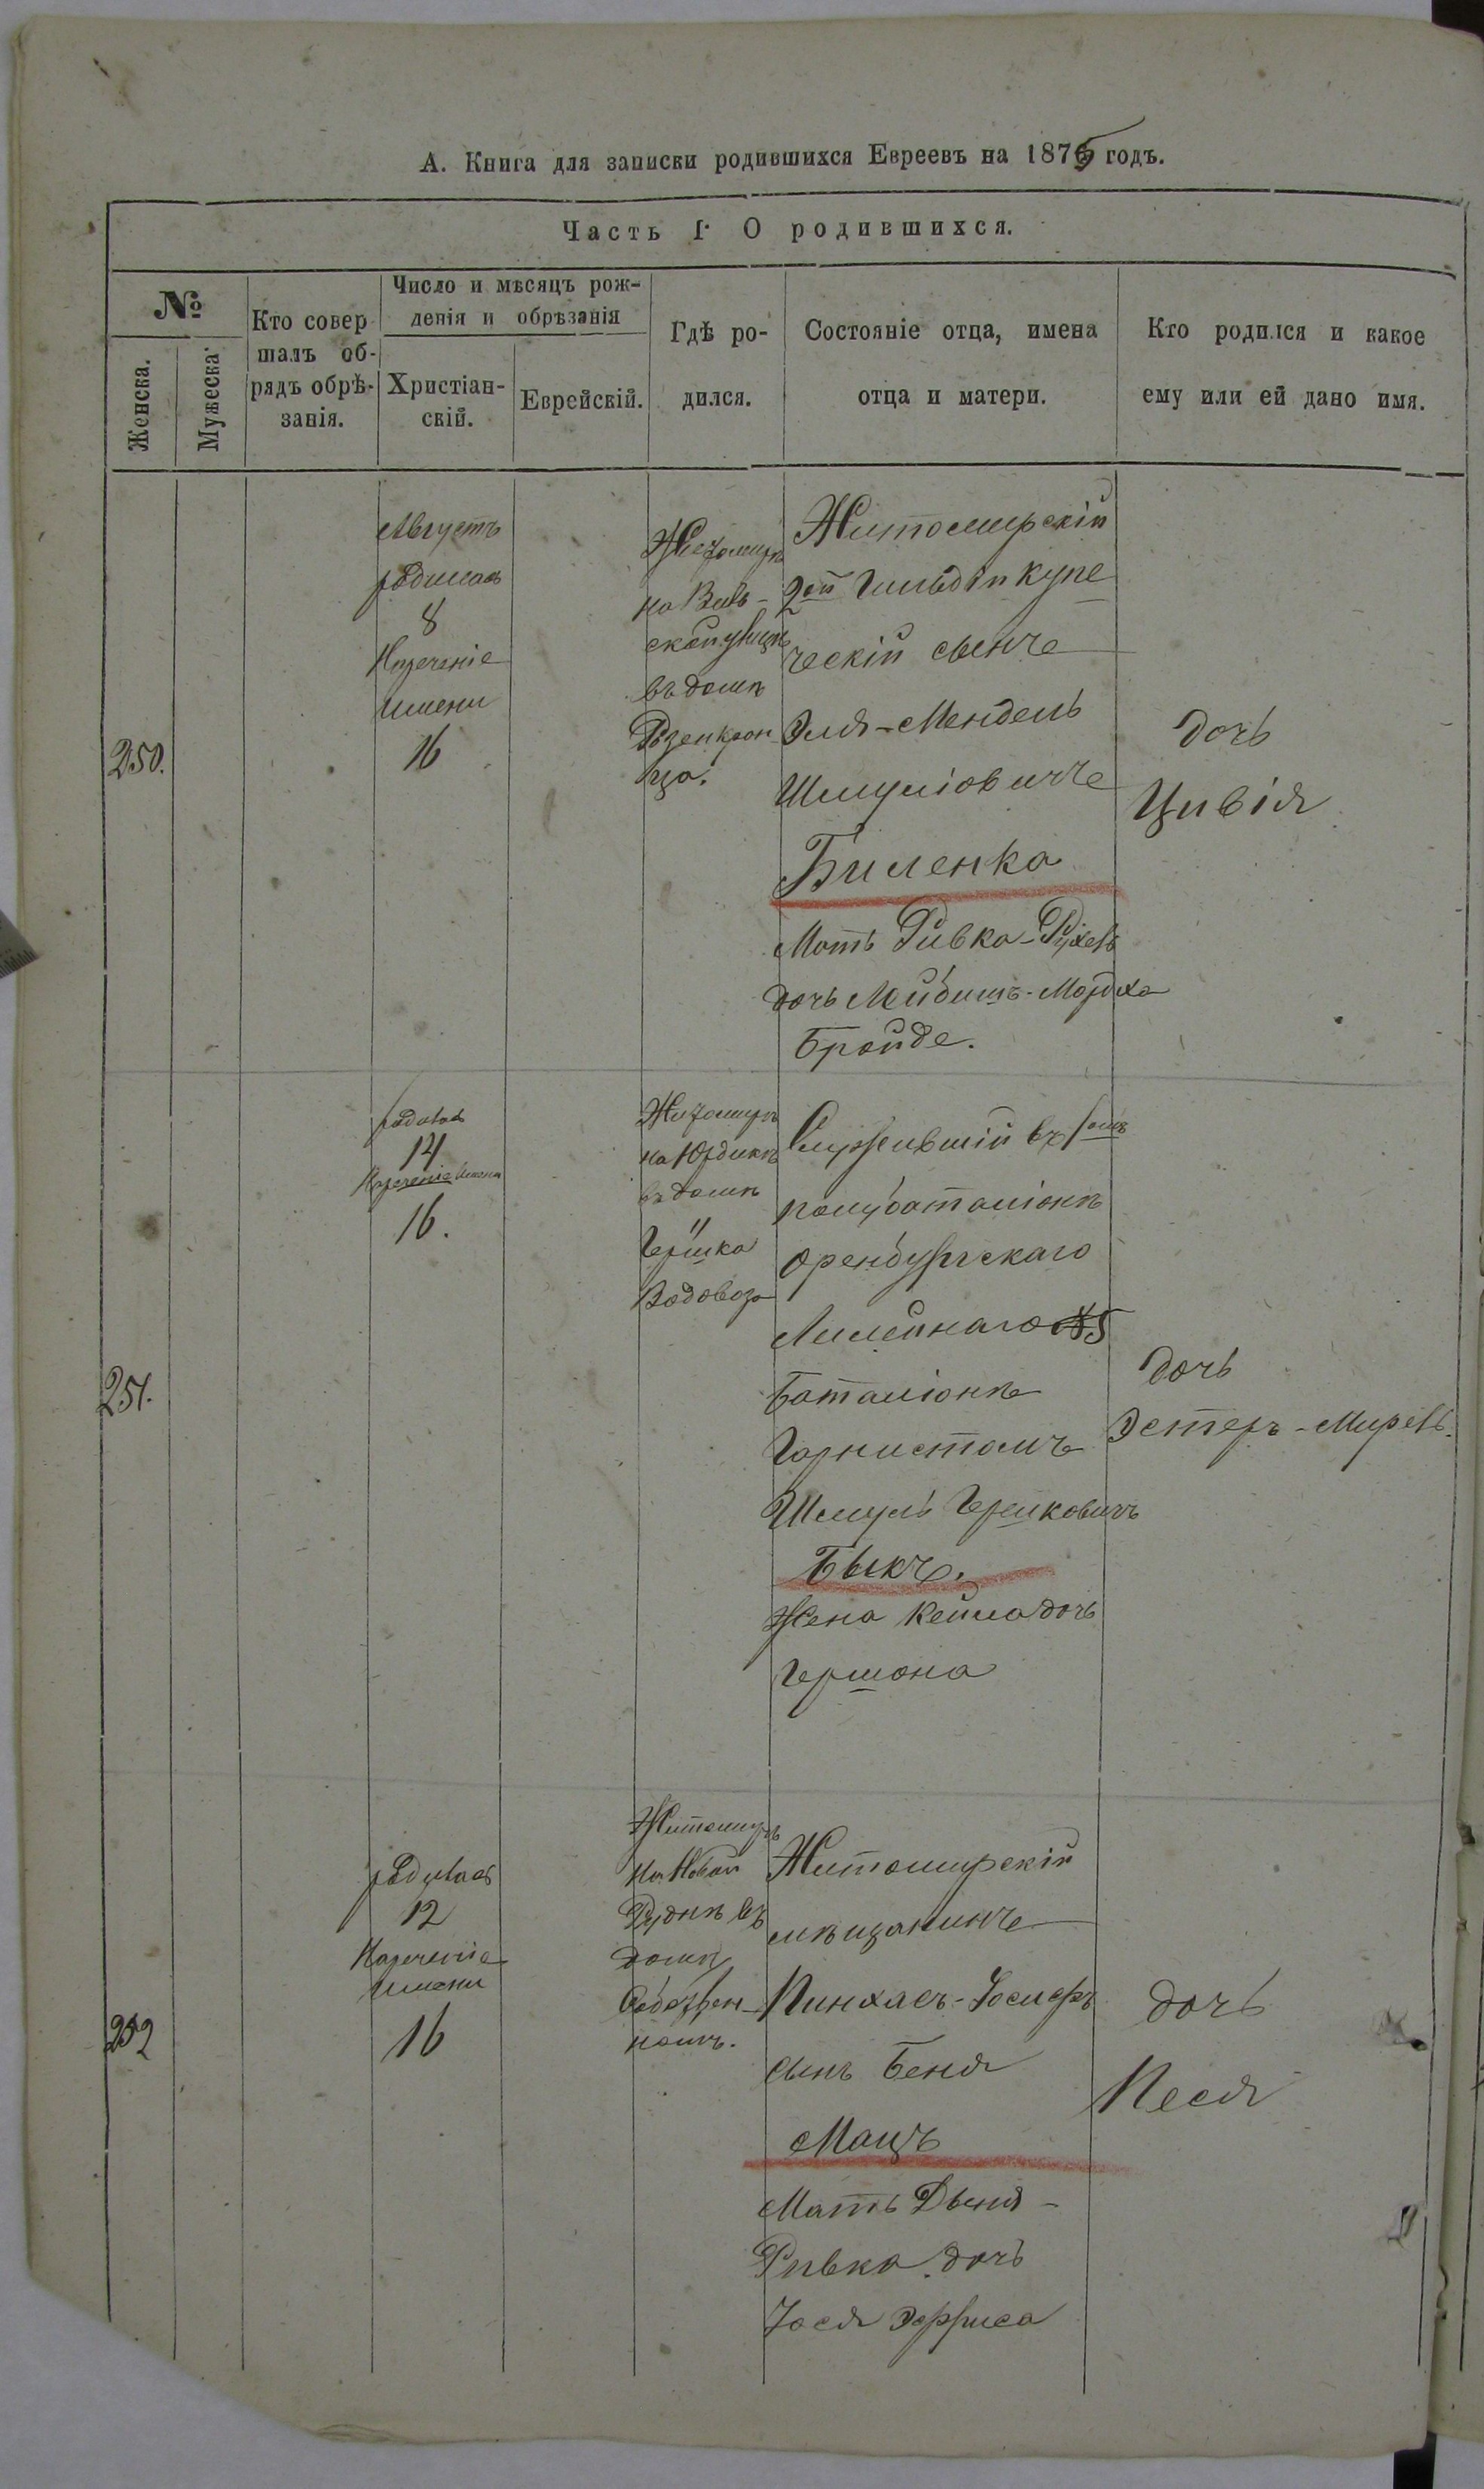 А. Книга для записки родившихся Евреевъ на 1875 годъ.
Часть I. О родившихся.
№
Женска.
Мужеска.
Кто совер
шалъ об-
рядъ обрѣ-
занія.
Число и мѣсяцъ рож-
денія и обрѣзанія
Христіан-
скій.
Еврейскій.
Гдѣ ро-
дился.
Состояніе отца, имена
отца и матери.
Кто родился и какое
ему или ей дано имя.
250.
Августъ
родилась
8
Нареченіе
имени
16
Житомирѣ
на
въ домѣ
Житомирскій
2ой Гильдіи купе
ческій сынъ
Эля-Мендель
Шмуліовичъ
Биленка
Мать Ривка-Рухель
дочь Лейбишъ-Мордха
Бройде.
дочь
Цивія
251.
родилась
14
Нареченіе имени
16.
Житомирѣ
на Юрдикѣ
въ домѣ
Гершка
Водовоза
Служившій въ
полубаталіонѣ
Оренбургскаго
Линейнаго №5
Баталіонѣ
Горнистомъ
Шмуль Гершковичъ
Быкъ.
Жена Кейла дочь
Гершона
дочь
Эстеръ-Мирель.
252
родилась
12
Нареченіе
имени
16
Житомирѣ
на Новой
Руднѣ въ
домѣ
Собствен-
номъ.
Житомирскій
мѣщанинъ
Пинхасъ-Іосифъ
сынъ Беня
Мацъ
Мать Двеня-
Ривка дочь
Іося
дочь
Песя